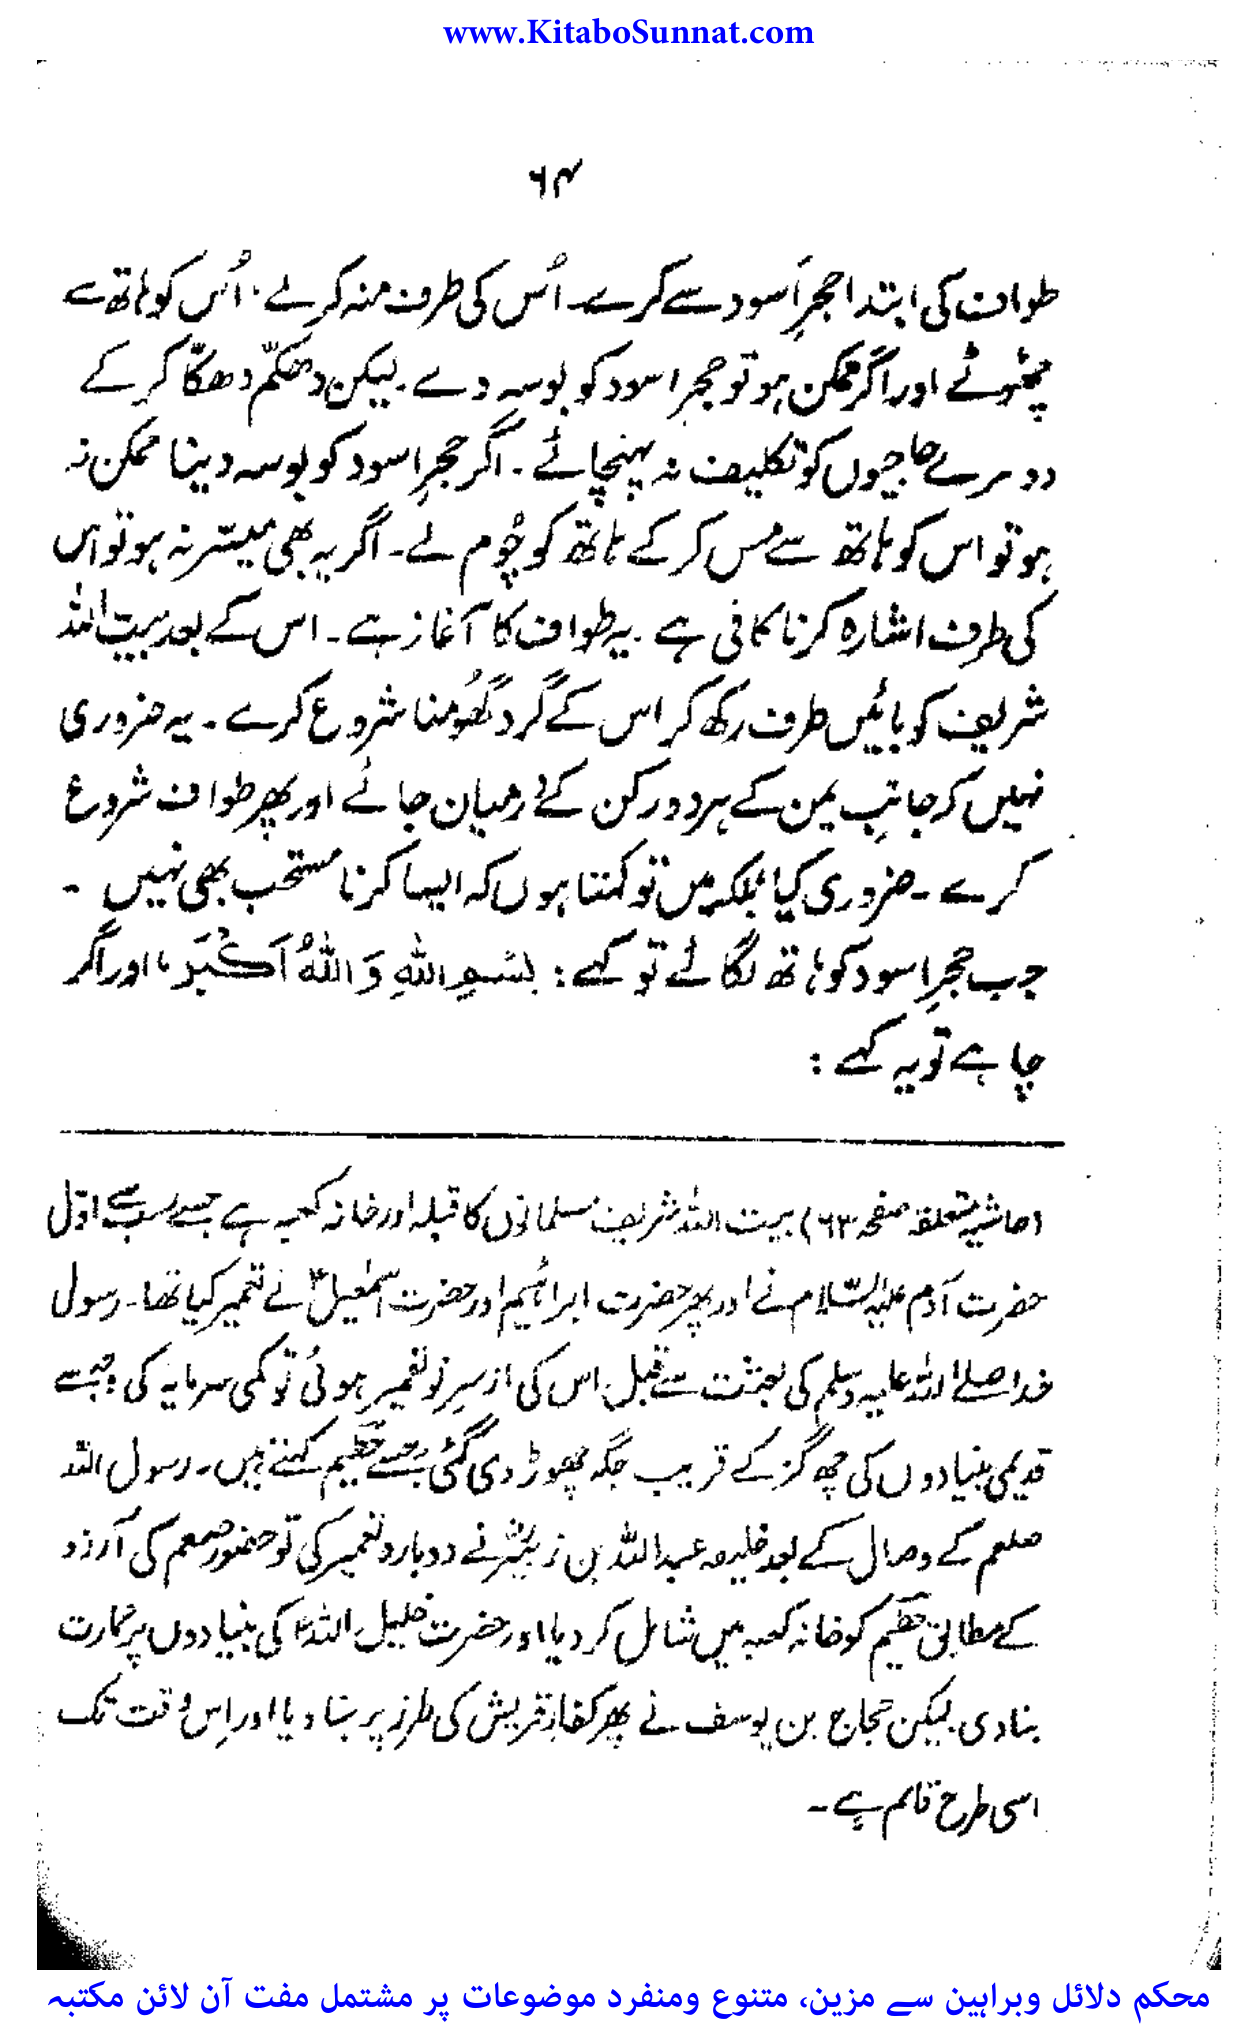 www.KitaboSunnat.com
۶۴
طواف کی ابتدا حجرِ اَسود سے کرے۔ اُس کی طرف منہ کرلے ۔ اُس کو ہاتھ سے
چھُوئے اور اگر ممکن ہو تو حجرِ اسود کو بوسہ دے ۔ لیکن دھکم دھکّا کر کے
دوسرے حاجیوں کو تکلیف نہ پہنچائے ۔ اگر حجرِ اسود کو بوسہ دینا ممکن نہ
ہو تو اس کو ہاتھ سے مس کر کے ہاتھ کو چُوم لے ۔ اگر یہ بھی میسّر نہ ہو تو اس
کی طرف اشارہ کرنا کافی ہے ۔ یہ طواف کا آغاز ہے ۔ اس کے بعد بیت اللہ
شریف کو بائیں طرف رکھ کر اس کے گرد گھُومنا شروع کرے ۔ یہ ضروری
نہیں کہ جانبِ یمن کے ہر دو رکن کے درمیان جائے اور پھر طواف شروع
کرے ۔ ضروری کیا بلکہ میں تو کہتا ہوں کہ ایسا کرنا مستحب بھی نہیں ۔
جب حجرِ اسود کو ہاتھ لگائے تو کہے : بِسْمِ اللهِ وَاللهُ اَكْبَرَ ، اور اگر
چاہے تو یہ کہے :
(حاشیہ متعلقہ صفحہ ۶۳) بیت اللہ شریف مسلمانوں کا قبلہ اور خانہ کعبہ ہے جسے سب سے اوّل
حضرت آدم علیہ السّلام نے اور پھر حضرت ابراہیم اور حضرت اسمٰعیلؑ نے تعمیر کیا تھا ۔ رسول
خدا صلے اللہ علیہ وسلم کی بعثت سے قبل اس کی از سرِ نو تعمیر ہوئی تو کمی سرمایہ کی وجہ سے
قدیمی بنیادوں کی چھ گز کے قریب جگہ چھوڑ دی گئی جسے حطیم کہتے ہیں ۔ رسول اللہ
صلعم کے وصال کے بعد خلیفہ عبداللہ بن زبیرؓ نے دوبارہ تعمیر کی تو حضور صلعم کی آرزو
کے مطابق حطیم کو خانہ کعبہ میں شامل کر دیا اور حضرت خلیل اللہؑ کی بنیادوں پر عمارت
بنا دی ۔ لیکن حجاج بن یوسف نے پھر کفار قریش کی طرز پر بنا دیا اور اِس وقت تک
اسی طرح قائم ہے ۔
محکم دلائل وبراہین سے مزین، متنوع ومنفرد موضوعات پر مشتمل مفت آن لائن مکتبہ